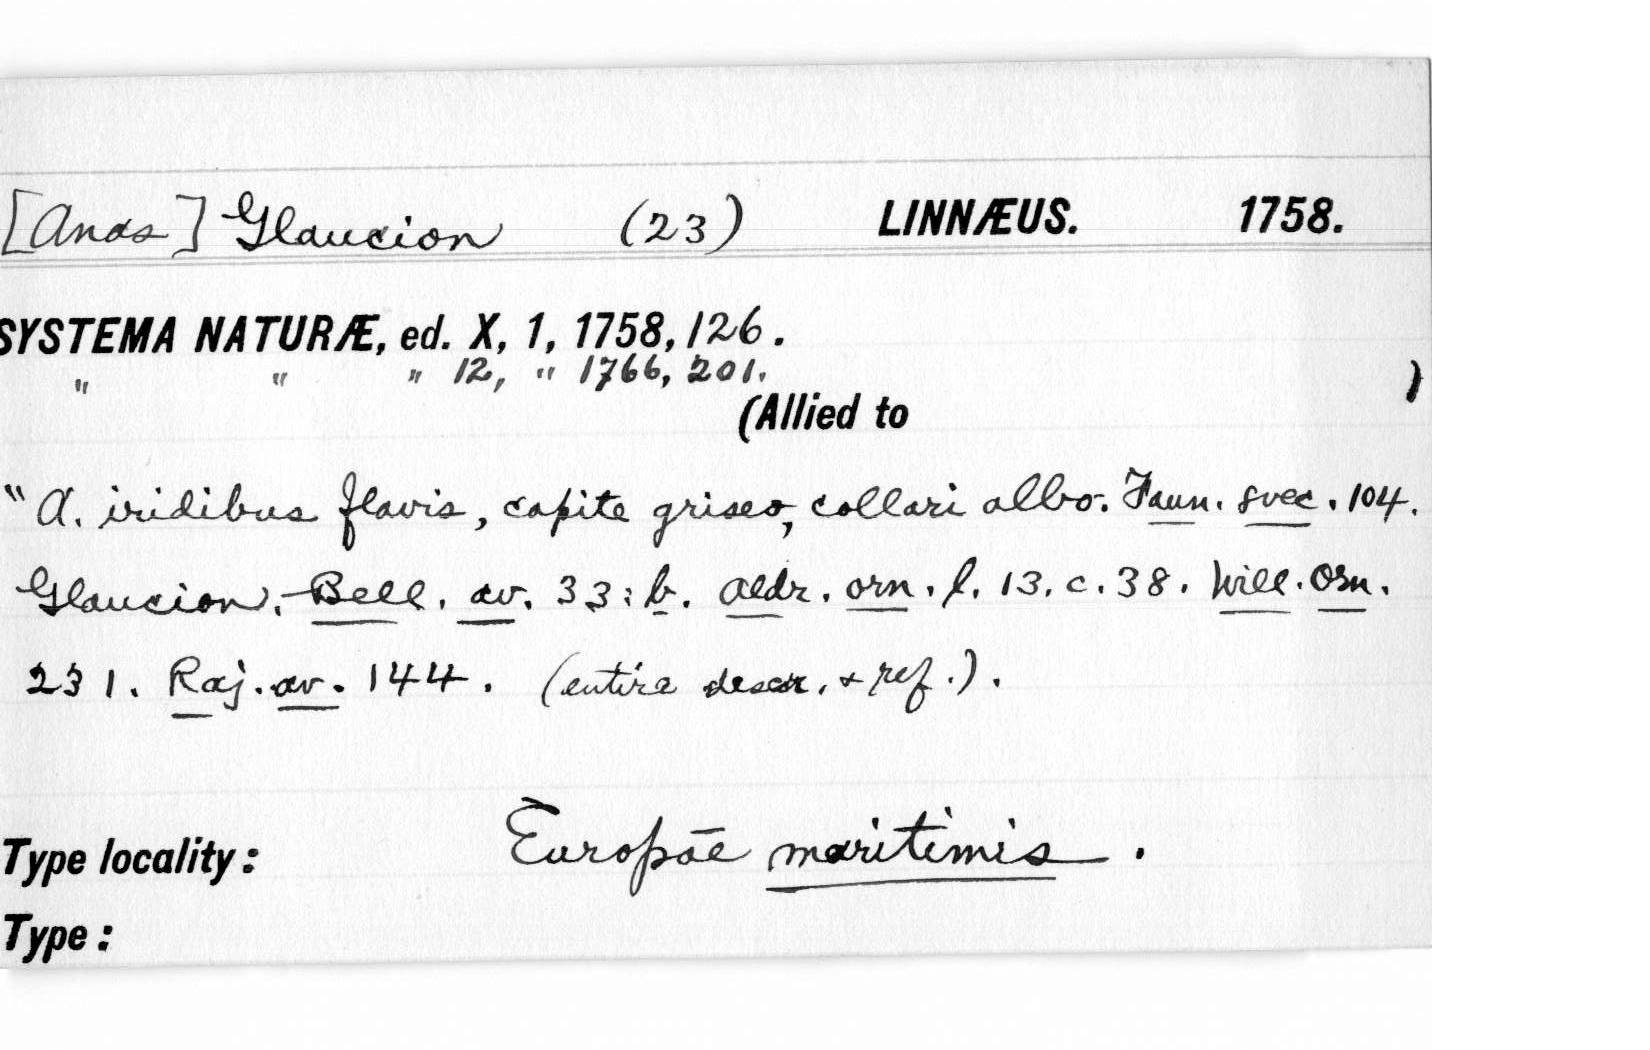 [Anas] Glaucion (23) LINNÆUS. 1758.
SYSTEMA NATURÆ, ed. X, 1, 1758, 126.
" " " 12, " 1766, 201.
(Allied to )
"A. iridibus flavis, capite griseo, collari albo. Faun. svec. 104.
Glaucion. Bell. av. 33: b. Aldr. orn. l. 13. c. 38. Will. Orn.
231. Raj. av. 144. (entire descr. & ref.).
Type locality: Europae maritimis.
Type: